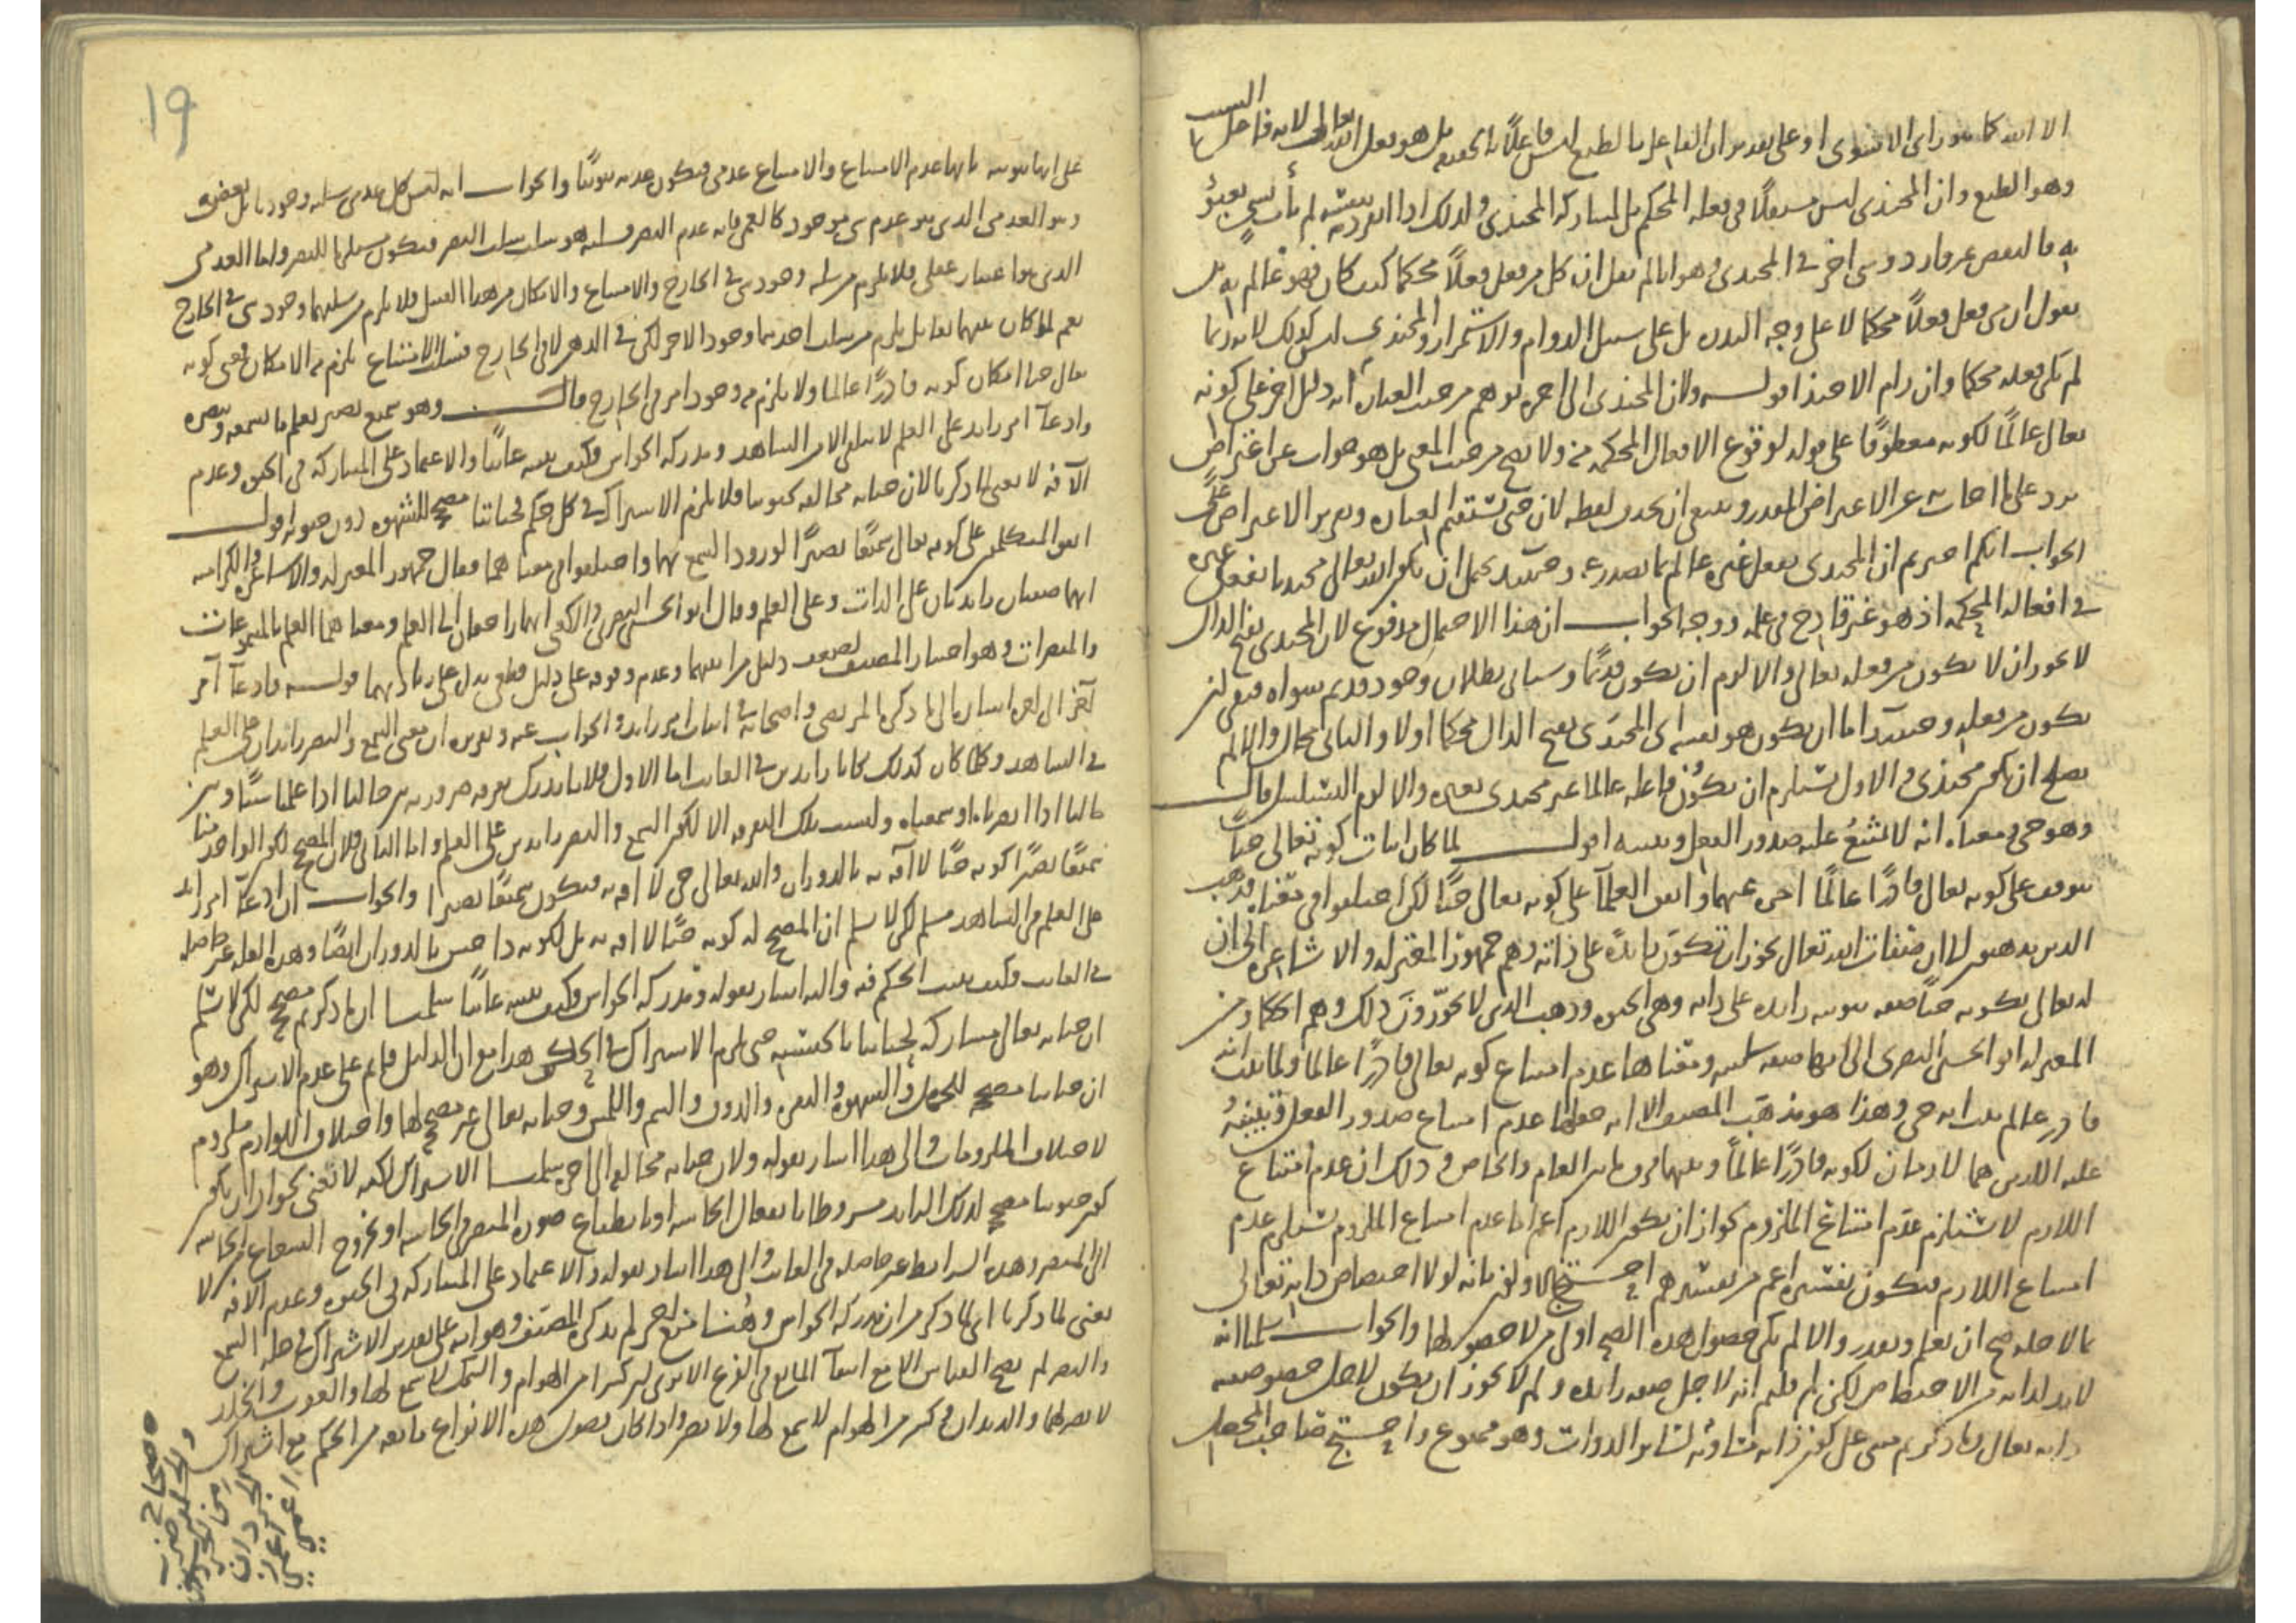 الا الله كما هو راى الاشعرى او على تقدير ان الفاعل بالطبع ليس فاعلاً بالحقيقه بل هو فعل الله تعالى لانه فاعل السبب
وهو الطبع وان المحتذى ليس مستقلاً فى فعله المحكم بل لمشاركه المحتذى ولذلك اذا انفرد بنفسه لم يأت بشىء يعبؤ
به فالنقص غير وارد وشى اخر فى المحتذى وهو انا لم نقل ان كل من فعل فعلاً محكما كيف كان فهو عالم به بل
نقول ان من فعل فعلاً محكما لا على وجه الندره بل على سبيل الدوام والاستمرار والمحتذى ليس كذلك لانه ربما
لم يكن فعله محكما وان رام الاحتذا قوله ولان المحتذى الى اخره يوهم من حيث العباره انه دليل اخر على كونه
تعالى عالمًا لكونه معطوفًا على قوله لوقوع الافعال المحكمه منه ولا يصح من حيث المعنى بل هو جواب عن اعتراض
يرد على ما اجاب به عن الاعتراض المقدر وينبغى ان يحذف لفظه لان حتى تستقيم العباره وتقرير الاعتراض على
الجواب انكم اخبرتم ان المحتذى بفعل غيره عالم بما يصدر عنه وحينئذ يحتمل ان يكون الله تعالى محتديا بفعل غيره
فى افعاله المحكمه اذ هو غير قادح فى علمه ووجه الجواب ان هذا الاحتمال مدفوع لان المحتدى بفتح الدال
لا يجوز ان لا يكون من فعله تعالى والا لزم ان يكون قديمًا وسياتى بطلان وجود قديم سواه فبقى ان
يكون من فعله وحينئذ اما ان يكون هو نفسه اى المحتدى بفتح الدال محكما اولا والثانى محال والا لم
يصلح ان يكون محتذى والاول يستلزم ان يكون فاعله عالما غير محتدى بغيره والا لزم التسلسل قال
وهو حى ومعناه انه لا يمتنع عليه صدور الفعل ونفسه اقول لما كان اثبات كونه تعالى حيًا
يتوقف على كونه تعالى قادرًا عالمًا اخره عنهما واتفق العلمآ على كونه تعالى حيًا لكن اختلفوا فى معناه فذهب
الذين يذهبون الى ان صفات الله تعالى يجوز ان تكون زايدةً على ذاته وهم جمهور المعتزله والاشاعره الى ان
له تعالى بكونه حيًا صفه ثبوتيه زايده على ذاته وهى الحيوه وذهب الذين لا يجوّزون ذلك وهم الحكما ومن
المعتزله ابو الحسين البصرى الى انها صفه سلبيه ومعناها عدم امتناع كونه تعالى قادرًا عالمًا ولما ثبت انه
قادر عالم ثبت انه حى وهذا هو مذهب المصنف الا انه جعلها عدم امتناع صدور الفعل وتبيّنه
عليه اللذين هما لازمان لكونه قادرًا عالمًا وبينهما فرق ما بين العام والخاص وذلك ان عدم امتناع
اللازم لا يستلزم عدم امتناع الملزوم لجواز ان يكون اللازم اعم اما عدم امتناع الملزوم يستلزم عدم
امتناع اللازم فيكون تفسيره اعم من تفسيرهم احتج الاولون بانه لولا اختصاص ذاته تعالى
بما لاجله صح ان يعلم ويقدر والا لم يكن حصول هذه الصحه اولى من لا حصولها والجواب سلمنا انه
لا بد لذاته من الاختصاص لكن لم قلتم انه لاجل صفه زايده ولم لا يجوز ان يكون لاجل خصوصيه
ذاته تعالى وما ذكرتم مبنى على كون ذاته مساويه لساير الذوات وهو ممنوع واحتج صاحب المحصل
19
على انها ثبوتيه بانها عدم الامتناع والامتناع عدمى فيكون عدمه ثبوتيًا والجواب انه ليس كل عدمى سلبه وجوديا بل بعضه
وهو العدمى الذى هو عدم شى موجود كالعمى فانه عدم البصر فسلبه هو سلب سلب البصر فيكون مستلزما للبصر واما العدمى
الذى هو اعتبار عقلى فلا يلزم من سلبه وجود شى فى الخارج والامتناع والامكان من هذا القبيل فلا يلزم من سلبهما وجود شى فى الخارج
نعم لو كان بينهما تقابل يلزم من سلب احدهما وجود الاخر لكن فى الذهن لا فى الخارج فسلب الامتناع يلزم منه الامكان فمعنى كونه
تعالى حيا امكان كونه قادرًا عالما ولا يلزم منه وجود امر فى الخارج قال وهو سميع بصير يعلم ما يسمعه ويبصره
وادعآ امر زايد على العلم لا يتلقى الا من الشاهد ومدركه الحواس فكيف نثبته غائبًا والاعتماد على المشاركه فى الحيوه وعدم
الآفه لا يغنى لما ذكرنا لان حياته مخالفه لحيوتنا فلا يلزم الاشتراك فى كل حكم فحياتنا مصحح للشهوه دون حيوته اقول
اتفق المتكلمون على كونه تعالى سميعًا بصيرًا لورود السمع بهما واختلفوا فى معناهما فقال جمهور المعتزله والاشاعره والكراميه
انهما صفتان زايدتان على الذات وعلى العلم وقال ابو الحسين البصرى والكعبى انهما راجعان الى العلم ومعناهما العلم بالمسموعات
والمبصرات وهو اختيار المصنف لضعف دليل من اثبتهما وعدم وقوفه على دليل قطعى يدل على زيادتهما قوله وادعآ امر
آخر الى اخره اشاره الى ما ذكره المرتضى واصحابه فى اثبات امر زايد والجواب عنه وتقريره ان معنى السمع والبصر زايدان على العلم
فى الشاهد وكلما كان كذلك كانا زايدين فى الغائب اما الاول فلانا ندرك تفرقه ضروريه بين حالنا اذا علمنا شيئًا وبين
حالنا اذا ابصرناه او سمعناه وليست تلك التفرقه الا لكون السمع والبصر زايدين على العلم واما الثانى فلان المصحح لكون الواحد منا
سميعًا بصيرًا كونه حيًا لا آفه به بالدوران والله تعالى حى لا آفه به فيكون سميعًا بصيرا والجواب ان ادعآ امر زايد
على العلم فى الشاهد مسلم لكن لا نسلم ان المصحح له كونه حيًا لا افه به بل لكونه ذا حس بالدوران ايضًا وهذه العله غير حاصله
فى الغائب فكيف يثبت الحكم فيه واليه اشار بقوله ومدركه الحواس فكيف نثبته غائبًا سلمنا ان ما ذكرتم مصحح لكن لا نسلم
ان حياته تعالى مشاركه لحياتنا بالحقيقه حتى يلزم الاشتراك فى الحكم هذا مع ان الدليل قايم على عدم الاشتراك وهو
ان حياتنا مصححه للجهل والشهوه والنفره والذوق والشم واللمس وحياته تعالى غير مصححه لها واختلاف اللوازم ملزوم
لاختلاف الملزومات والى هذا اشار بقوله ولان حياته مخالفه الى اخره سلمنا الاشتراك لكنه لا يغنى لجواز ان يكون
كون حيوتنا مصححه لذلك الزايد مشروطا بانفعال الحاسه او بانطباع صوره المبصر فى الحاسه او بخروج الشعاع من الحاسه
الى المبصر وهذه الشرائط غير حاصله فى الغائب والى هذا اشار بقوله والاعتماد على المشاركه فى الحيوه وعدم الافه لا
يغنى لما ذكرنا اى لما ذكر من ان مدركه الحواس وهُنا منع اخر لم يذكره المصنف وهو انه على تقدير الاشتراك فى عله السمع
والبصر لم يصح القياس الا مع انتفآ المانع فى الفرع الا ترى ان كثيرا من الهوام والسمك لا سمع لها والعقرب والخلد
لا بصر لهما والديدان وكثير من الهوام لا سمع لها ولا بصر واذا كان فصول هذه الانواع مانعه من الحكم مع اشتراك